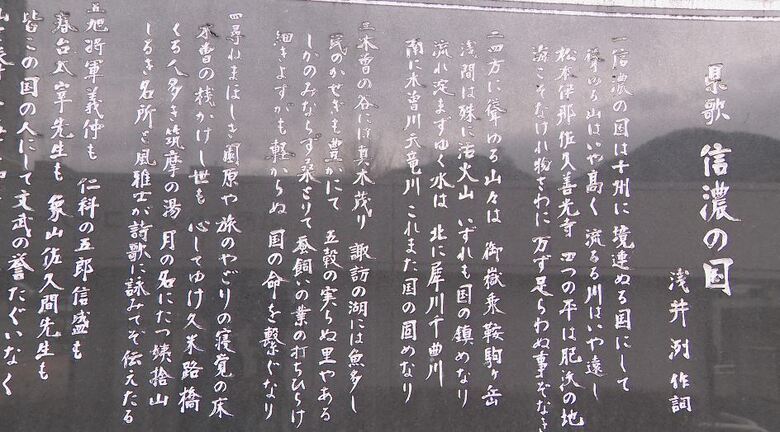 県歌 信濃の国
浅井洌 作詞
一 信濃の国は十州に 境連ぬる国にして
聳ゆる山はいや高く 流るる川はいや遠し
松本伊那佐久善光寺 四つの平は肥沃の地
海こそなけれ物さわに 万ず足らわぬ事ぞなき
二 四方に聳ゆる山々は 御嶽乗鞍駒ヶ岳
浅間は殊に活火山 いずれも国の鎮めなり
流れ淀まずゆく水は 北に犀川千曲川
南に木曽川天竜川 これまた国の固めなり
三 木曽の谷には真木茂り 諏訪の湖には魚多し
民のかせぎも豊かにて 五穀の実らぬ里やある
しかのみならず桑とりて 蚕飼いの業の打ちひらけ
細きよすがも軽からぬ 国の命を繋ぐなり
四 尋ねまほしき園原や 旅のやどりの寝覚の床
木曽の桟かけし世も 心してゆけ久米路橋
くる人多き筑摩の湯 月の名にたつ姨捨山
しるき名所と風雅士が 詩歌に詠みてぞ伝えたる
五 旭将軍義仲も 仁科の五郎信盛も
春台太宰先生も 象山佐久間先生も
皆この国の人にして 文武の誉たぐいなく